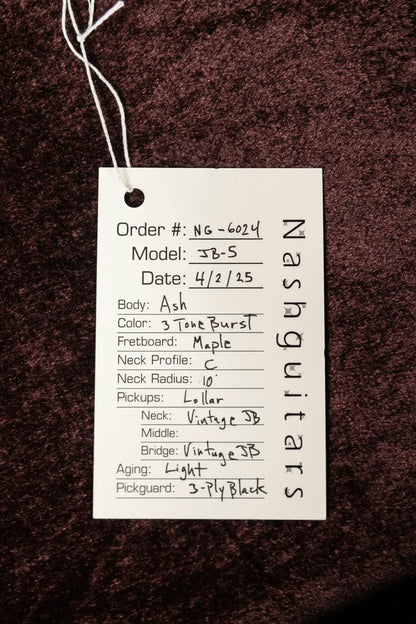 Order #: NG-6024
Model: JB-5
Date: 4/2/25
Body: Ash
Color: 3 Tone Burst
Fretboard: Maple
Neck Profile: C
Neck Radius: 10"
Pickups: Lollar
Neck: Vintage JB
Middle:
Bridge: Vintage JB
Aging: Light
Pickguard: 3-Ply Black
Nashguitars